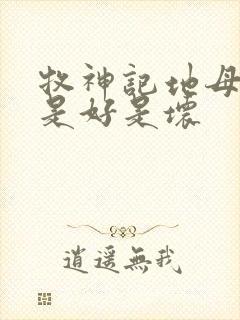 牧神記地母
是好是壞
逍遥無我